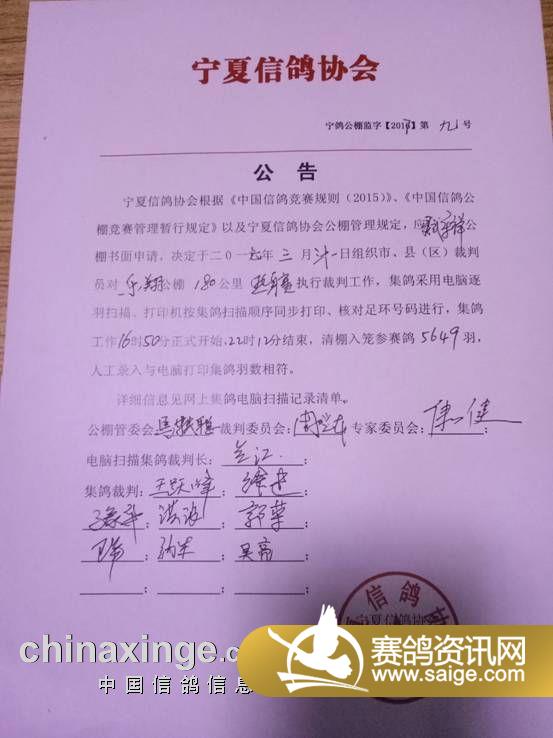 宁夏信鸽协会
宁鸽公棚监字【201】第 九 号
公 告
宁夏信鸽协会根据《中国信鸽竞赛规则（2015）》、《中国信鸽公
棚竞赛管理暂行规定》以及宁夏信鸽协会公棚管理规定，应公
棚书面申请，决定于二0一年 三 月 日组织市、县（区）裁判
员对 乐翔公棚 180公里 热身赛执行裁判工作，集鸽采用电脑逐
羽扫描、打印机按集鸽扫描顺序同步打印、核对足环号码进行，集鸽
工作16时50分正式开始，22时12分结束，清棚入笼参赛鸽 5649 羽，
人工录入与电脑打印集鸽羽数相符。
详细信息见网上集鸽电脑扫描记录清单。
公棚管委会：裁判委员会：专家委员会：
电脑扫描集鸽裁判长：
集鸽裁判：王跃峰；
洪波；郭苹；
吴亮；
信鸽
宁夏信鸽协
chinaxinge.c
中国信鸽信息
赛鸽资讯网
www.saige.com